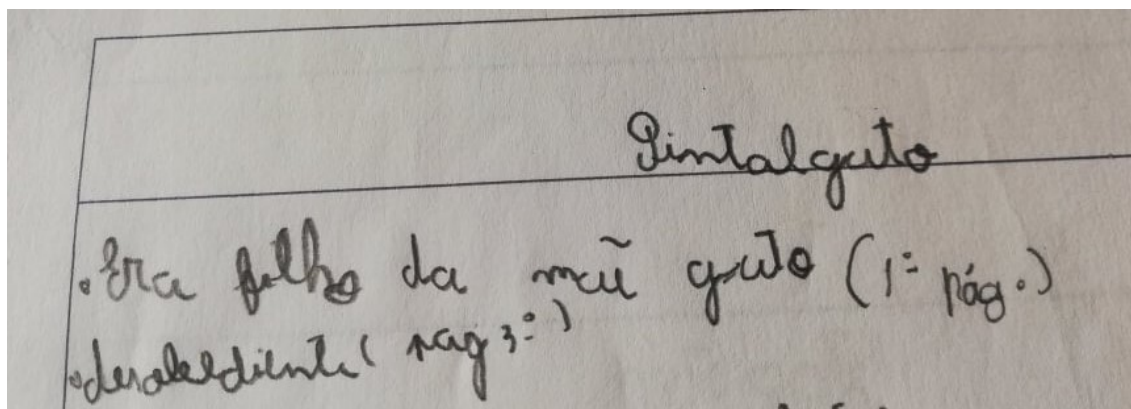 Pintalgato
• Era filho da mãe gato (1ª pág.)
• desobediente (pag 3ª)